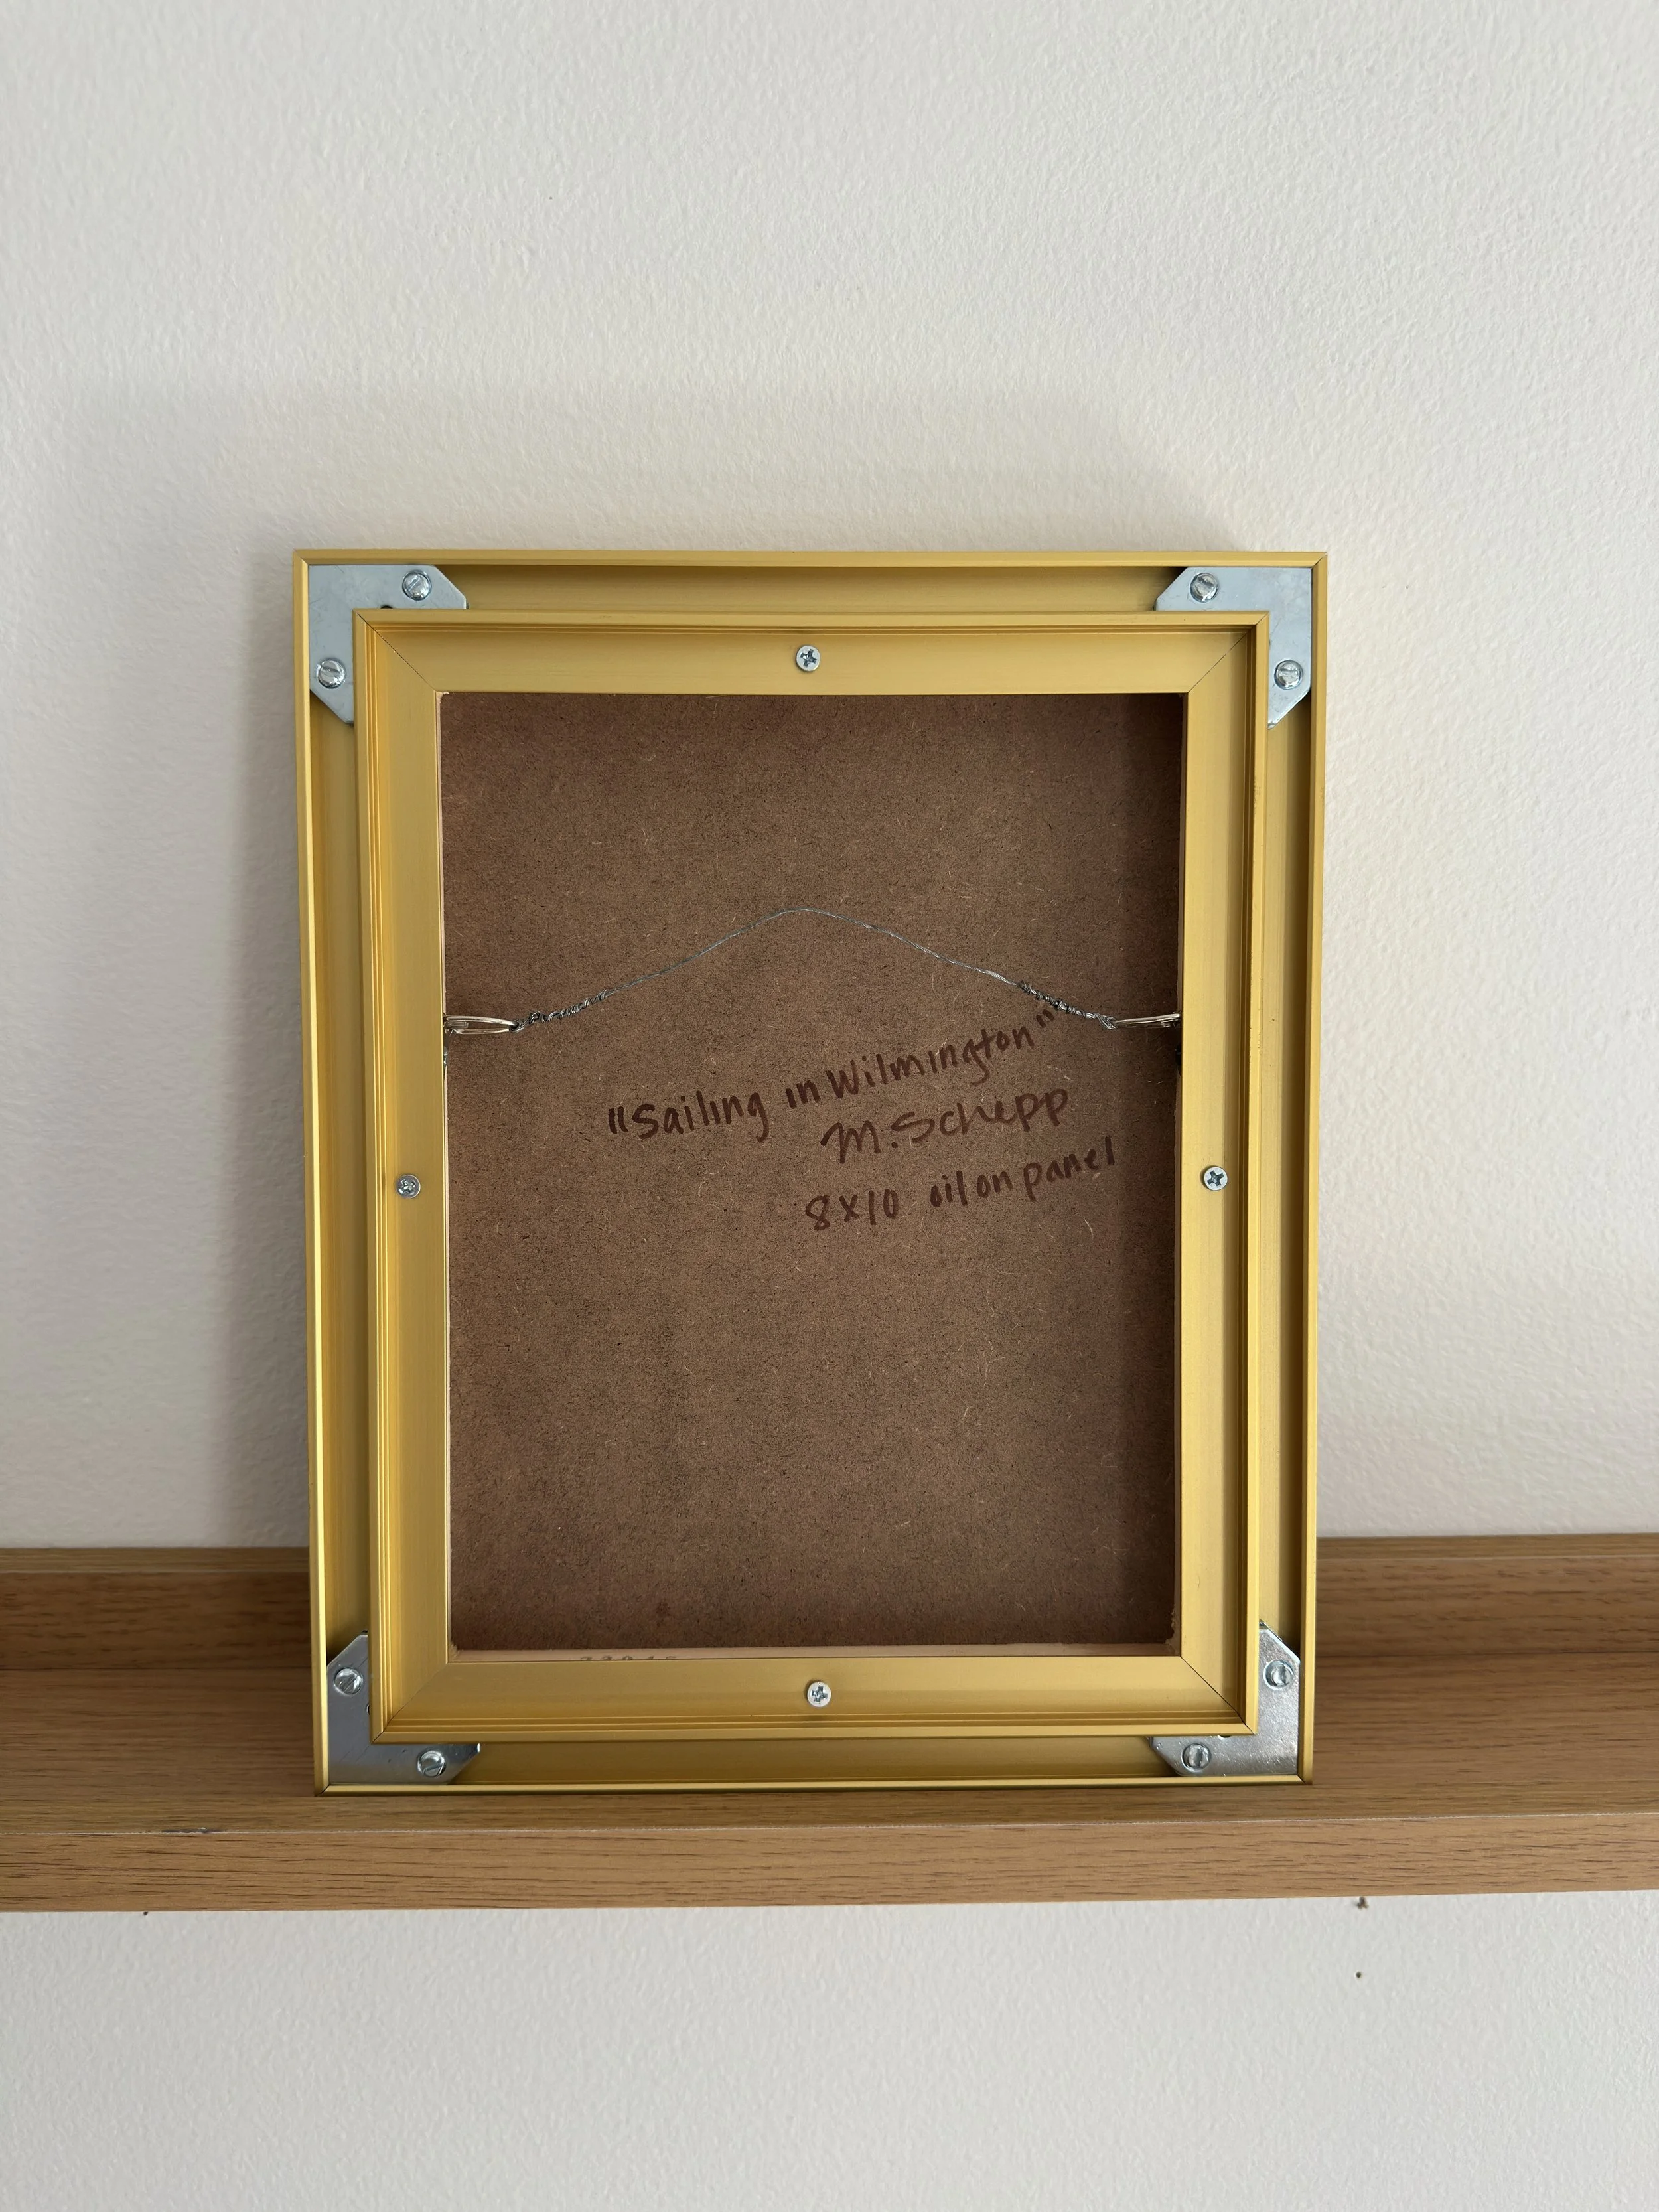 "Sailing in Wilmington"
M. Schepp
8x10 oil on panel